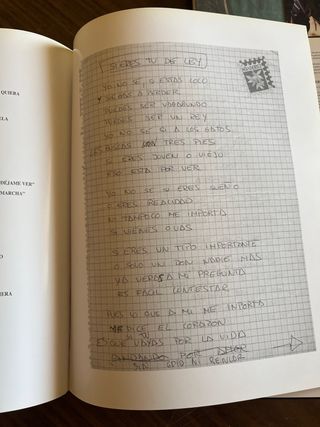 QUIERA
ELA
DÉJAME VER"
MARCHA"
O
IERA
SI ERES TU DE LEY
YO NO SE SI ESTAS LOCO
Y JUEGAS A PERDER
PUEDES SER VAGABUNDO
PUEDES SER UN REY
YO NO SE SI A LOS GATOS
LES BUSCAS TRES PIES
SI ERES JOVEN O VIEJO
ESO ESTA POR VER
YO NO SE SI ERES SUEÑO
O ERES REALIDAD
NI TAMPOCO ME IMPORTA
SI VIENES O VAS
SI ERES UN TIPO IMPORTANTE
O SOLO UN DON NADIE MAS
YA VERAS A MI PREGUNTA
ES FACIL CONTESTAR
PUES LO QUE A MI ME IMPORTA
ME DICE EL CORAZON
ES QUE VAYAS POR LA VIDA
SIN ODIO NI RENCOR